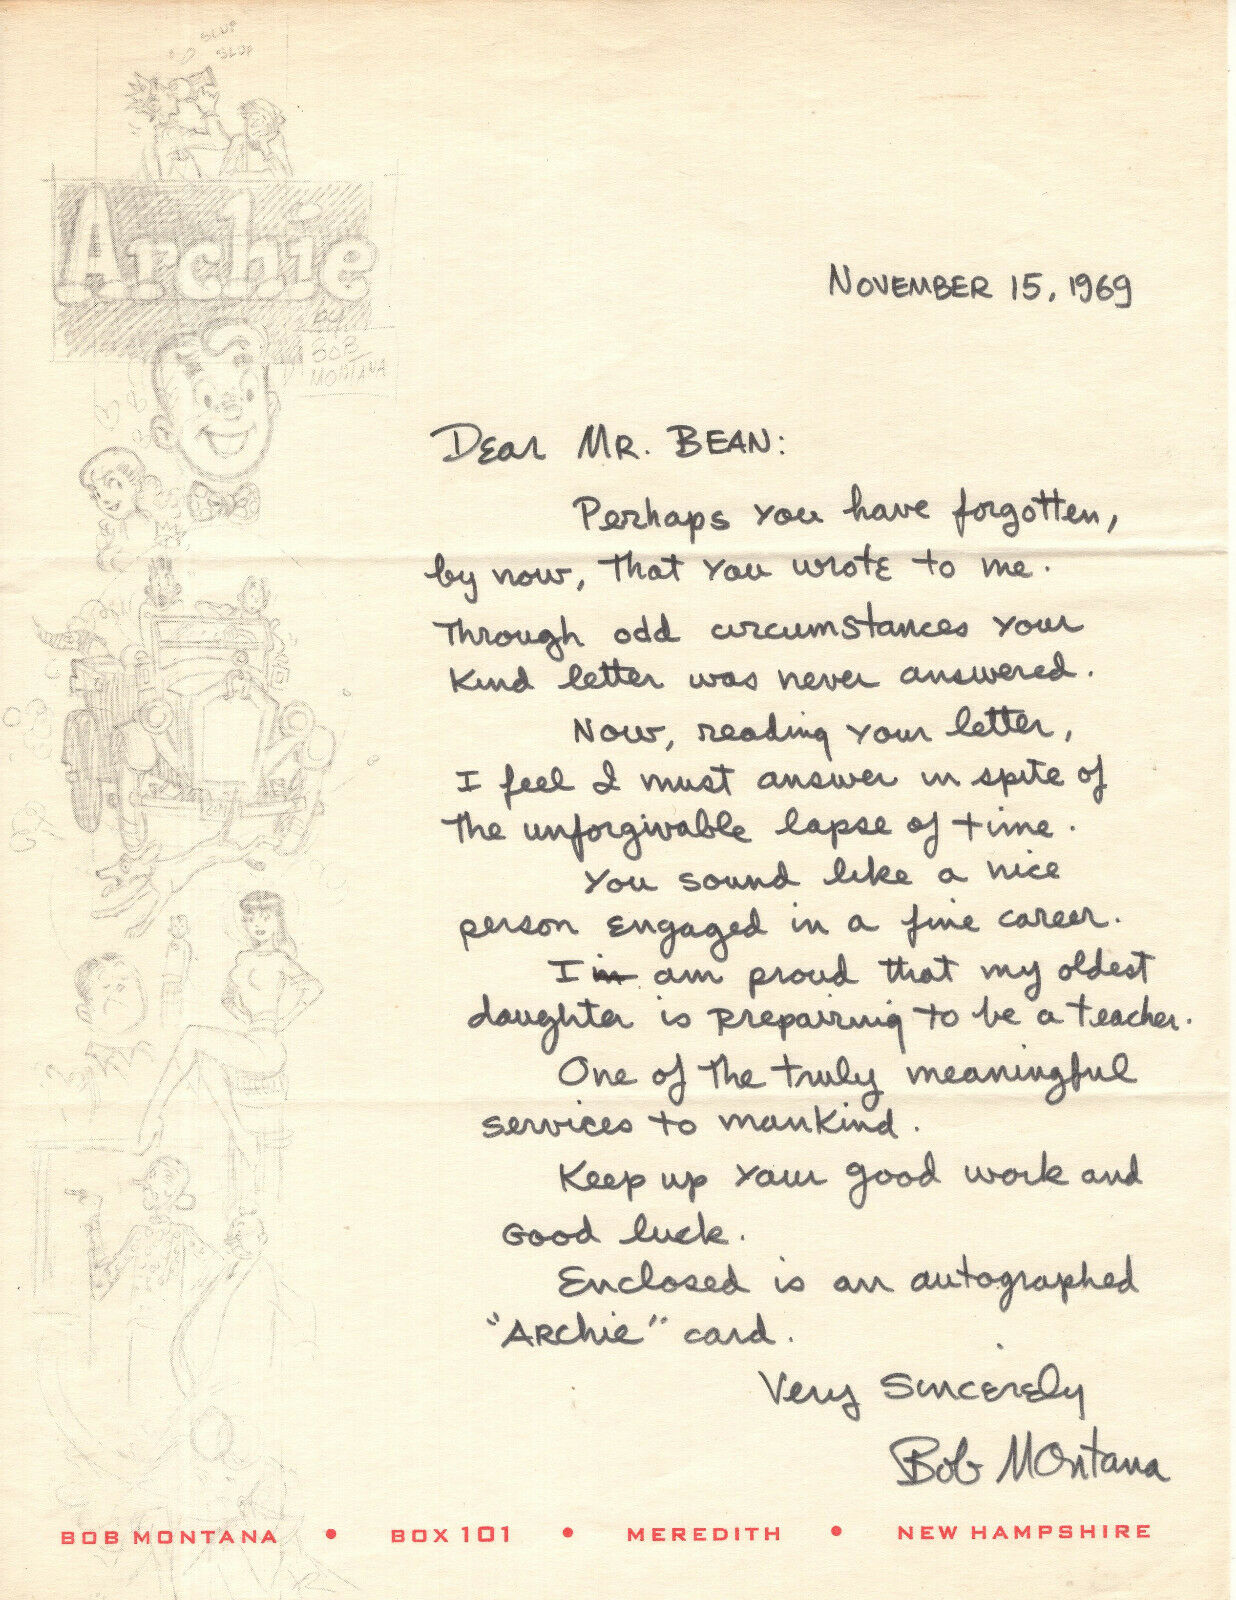 SLUP
SLUP
Archie
by
BOB
MONTANA
NOVEMBER 15, 1969
Dear MR. BEAN:
Perhaps you have forgotten,
by now, that you wrote to me.
Through odd circumstances your
kind letter was never answered.
Now, reading your letter,
I feel I must answer in spite of
the unforgivable lapse of time.
You sound like a nice
person engaged in a fine career.
I in am proud that my oldest
daughter is preparing to be a teacher.
One of the truly meaningful
services to mankind.
Keep up your good work and
Good luck.
Enclosed is an autographed
"ARchie" card.
Very Sincerely
Bob Montana
BOB MONTANA • BOX 101 • MEREDITH • NEW HAMPSHIRE